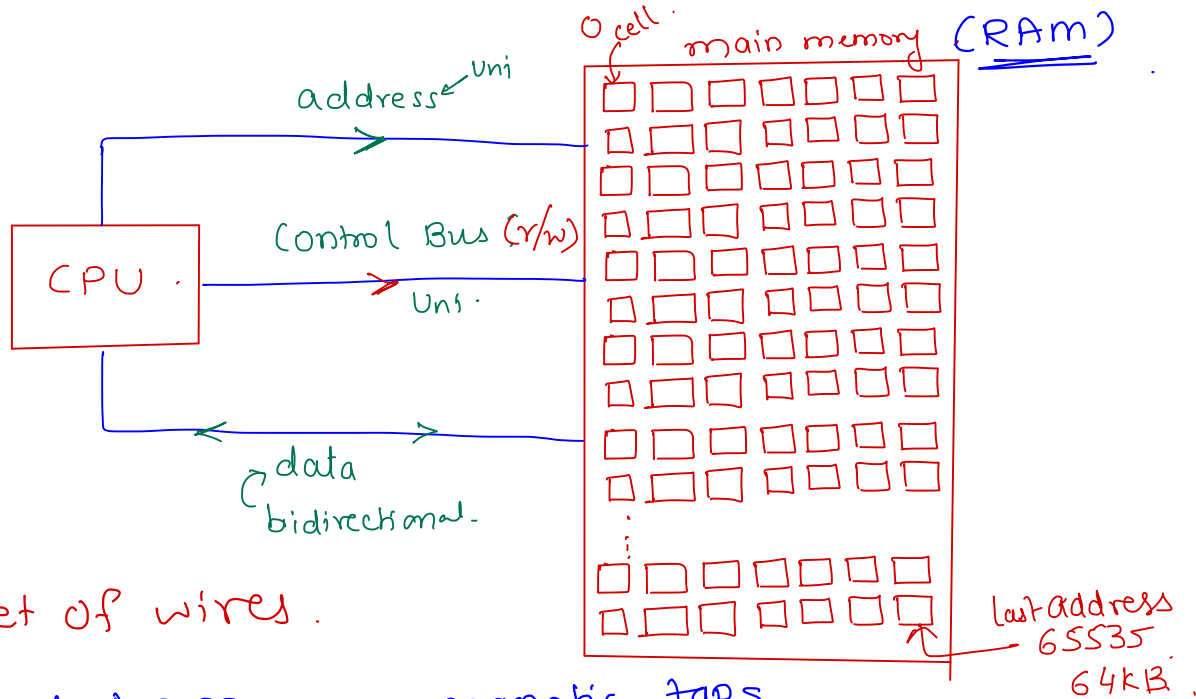 0 cell.
main memory (RAM)
address
Uni
Control Bus (r/w)
Uni.
CPU
data
bidirectional.
et of wires.
last address
65535
64kB.